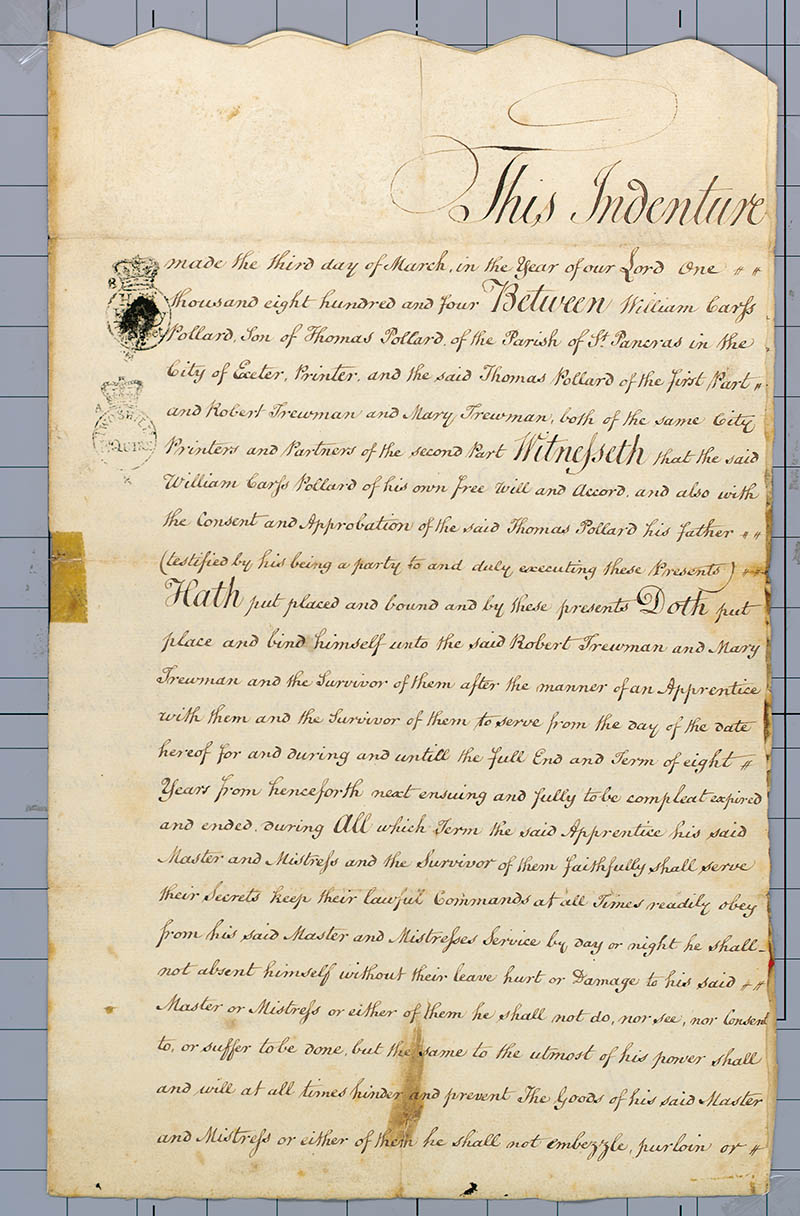 This Indenture
made the third day of March, in the Year of our Lord One " "
thousand eight hundred and four Between William Carſs
Pollard, Son of Thomas Pollard, of the Parish of St. Pancras in the
City of Exeter, Printer, and the said Thomas Pollard of the first Part "
and Robert Trewman and Mary Trewman, both of the same City
Printers and Partners of the second Part Witneſseth that the said
William Carſs Pollard of his own free Will and Accord, and also with
the Consent and Approbation of the said Thomas Pollard his father " "
(testified by his being a party to and duly executing these Presents) " "
Hath put placed and bound and by these presents Doth put
place and bind himself unto the said Robert Trewman and Mary
Trewman and the Survivor of them after the manner of an Apprentice
with them and the Survivor of them to serve from the day of the date
hereof for and during and untill the full End and Term of eight "
Years from henceforth next ensuing and fully to be compleat expired
and ended, during All which Term the said Apprentice his said
Master and Miſtreſs and the Survivor of them faithfully shall serve
their Secrets keep their lawful Commands at all Times readily obey
from his said Master and Mistreſses Service by day or night he shall
not absent himself without their leave hurt or Damage to his said " "
Master or Mistreſs or either of them he shall not do, nor see, nor Consent
to, or suffer to be done, but the same to the utmost of his power shall
and will at all times hinder and prevent The Goods of his said Master
and Mistreſs or either of them he shall not embezzle, purloin or "